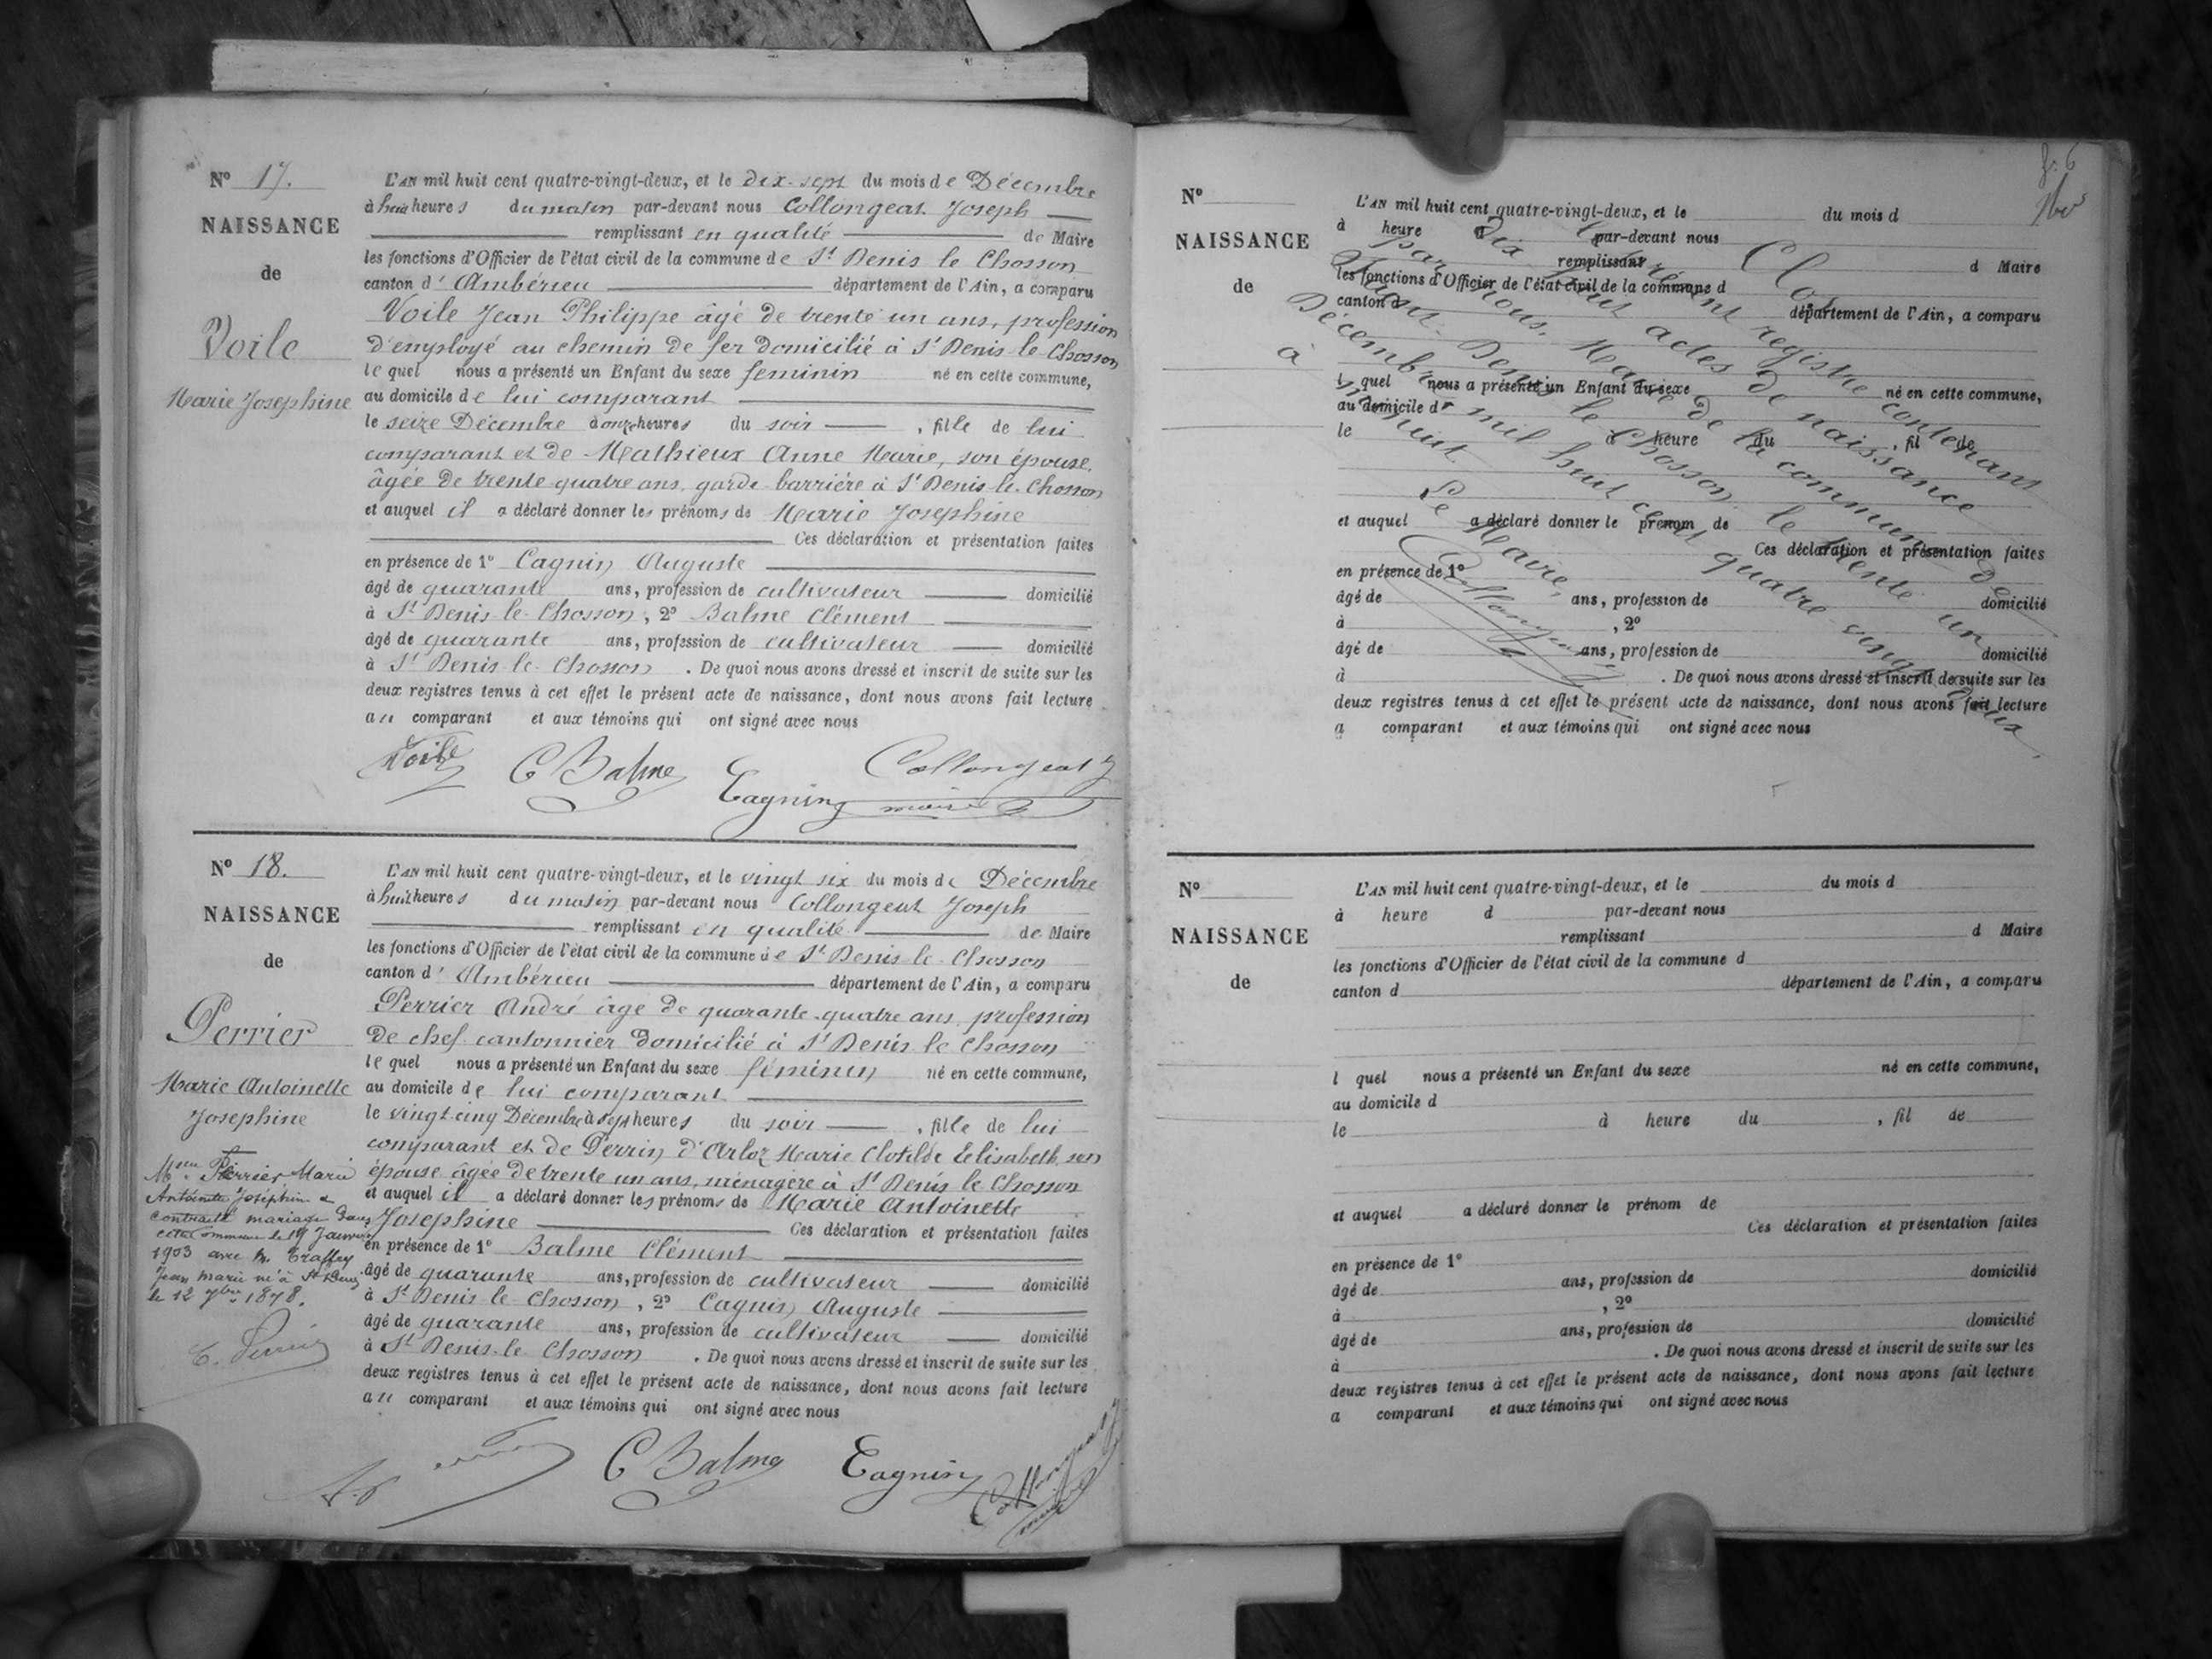 N° 17.
NAISSANCE
de
Voile
Marie Josephine
L'AN mil huit cent quatre-vingt-deux, et le dix-sept du mois de Décembre
à huit heures du matin par-devant nous Collongeat Joseph
remplissant en qualité de Maire
les fonctions d'Officier de l'état civil de la commune de St Denis le Chosson
canton d'Ambérieu département de l'Ain, a comparu
Voile Jean Philippe âgé de trente un ans, profession
d'employé au chemin de fer domicilié à St Denis-le-Chosson
le quel nous a présenté un Enfant du sexe feminin né en cette commune,
au domicile de lui comparant
le seize Décembre à onze heures du soir, fille de lui
comparant et de Mathieux Anne Marie, son épouse,
âgée de trente-quatre ans, garde-barrière à St Denis-le-Chosson
et auquel il a déclaré donner les prénoms de Marie Josephine
Ces déclaration et présentation faites
en présence de 1° Cagnin Auguste
âgé de quarante ans, profession de cultivateur domicilié
à St Denis-le-Chosson, 2° Balme Clément
âgé de quarante ans, profession de cultivateur domicilié
à St Denis-le-Chosson. De quoi nous avons dressé et inscrit de suite sur les
deux registres tenus à cet effet le présent acte de naissance, dont nous avons fait lecture
au comparant et aux témoins qui ont signé avec nous
Voile C Balme Cagnin Collongeat J
maire
N° 18.
NAISSANCE
de
Perrier
Marie Antoinette
Josephine
Perrier Marie
Antoinette Joséphine a
contracté mariage dans
cette commune le 19 Janvier
1903 avec M. Traffay
Jean Marie né à St Denis
le 12 7bre 1878.
L'AN mil huit cent quatre-vingt-deux, et le vingt six du mois de Décembre
à huit heures du matin par-devant nous Collongeat Joseph
remplissant en qualité de Maire
les fonctions d'Officier de l'état civil de la commune de St Denis-le-Chosson
canton d'Ambérieu département de l'Ain, a comparu
Perrier André âgé de quarante-quatre ans, profession
de chef cantonnier domicilié à St Denis le Chosson
le quel nous a présenté un Enfant du sexe féminin né en cette commune,
au domicile de lui comparant
le vingt-cinq Décembre à sept heures du soir, fille de lui
comparant et de Perrin d'Arloz Marie Clotilde Elisabeth, son
épouse âgée de trente un ans, ménagère à St Denis le Chosson
et auquel il a déclaré donner les prénoms de Marie Antoinette
Josephine Ces déclaration et présentation faites
en présence de 1° Balme Clément
âgé de quarante ans, profession de cultivateur domicilié
à St Denis-le-Chosson, 2° Cagnin Auguste
âgé de quarante ans, profession de cultivateur domicilié
à St Denis-le-Chosson. De quoi nous avons dressé et inscrit de suite sur les
deux registres tenus à cet effet le présent acte de naissance, dont nous avons fait lecture
au comparant et aux témoins qui ont signé avec nous
C Balme Cagnin Collongeat J
maire
f. 6
N°
NAISSANCE
de
L'AN mil huit cent quatre-vingt-deux, et le du mois d
à heure d par-devant nous
remplissant d Maire
les fonctions d'Officier de l'état civil de la commune d
canton d département de l'Ain, a comparu
l quel nous a présenté un Enfant du sexe né en cette commune,
au domicile d
le à heure du, fil de
et auquel a déclaré donner le prénom de
Ces déclaration et présentation faites
en présence de 1°
âgé de ans, profession de domicilié
à, 2°
âgé de ans, profession de domicilié
à. De quoi nous avons dressé et inscrit de suite sur les
deux registres tenus à cet effet le présent acte de naissance, dont nous avons fait lecture
a comparant et aux témoins qui ont signé avec nous
Clos
le présent registre contenant
dix huit actes de naissance
par nous, Maire de la commune de
Saint-Denis le Chosson le trente un
Décembre mil huit cent quatre-vingt deux
à minuit.
Le Maire,
Collongeat J
N°
NAISSANCE
de
L'AN mil huit cent quatre-vingt-deux, et le du mois d
à heure d par-devant nous
remplissant d Maire
les fonctions d'Officier de l'état civil de la commune d
canton d département de l'Ain, a comparu
l quel nous a présenté un Enfant du sexe né en cette commune,
au domicile d
le à heure du, fil de
et auquel a déclaré donner le prénom de
Ces déclaration et présentation faites
en présence de 1°
âgé de ans, profession de domicilié
à, 2°
âgé de ans, profession de domicilié
à. De quoi nous avons dressé et inscrit de suite sur les
deux registres tenus à cet effet le présent acte de naissance, dont nous avons fait lecture
a comparant et aux témoins qui ont signé avec nous